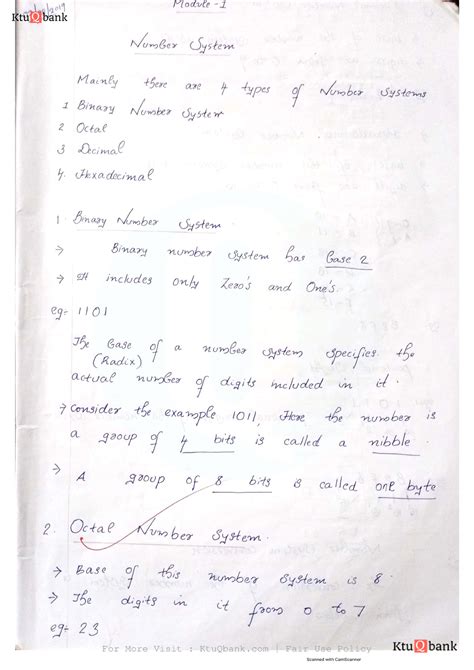 Module - 1
KtuQbank
Number System
Mainly there are 4 types of Number Systems
1 Binary Number System
2 Octal
3 Decimal
4. Hexadecimal
1. Binary Number System.
→ Binary number system has Base 2
→ It includes only Zero's and One's.
eg= 1101
The Base of a number system specifies the
(Radix)
actual number of digits included in it.
→ consider the example 1011, Here the number is
a group of 4 bits is called a nibble.
→ A group of 8 bits is called one byte
2. Octal Number System.
→ Base of this number system is 8.
→ The digits in it from 0 to 7
eg= 23
For More Visit : KtuQbank.com | Fair Use Policy
KtuQbank
Scanned with CamScanner